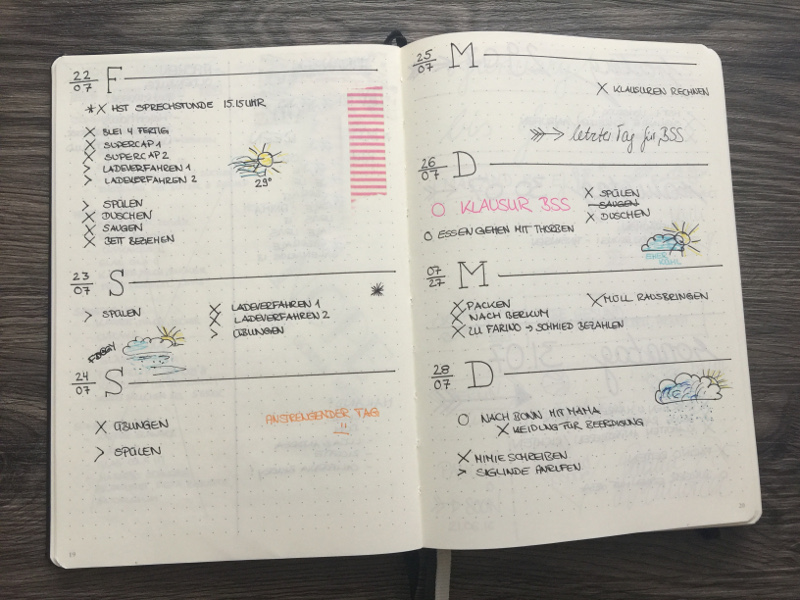 22
07
F
* X HST SPRECHSTUNDE 15.15 UHR
X BLEI 4 FERTIG
X SUPERCAP 1
X SUPERCAP 2
> LADEVERFAHREN 1
> LADEVERFAHREN 2
29°
> SPÜLEN
X DUSCHEN
X SAUGEN
X BETT BEZIEHEN
23
07
S
> SPÜLEN
X LADEVERFAHREN 1
X LADEVERFAHREN 2
> ÜBUNGEN
FOGGY
24
07
S
X ÜBUNGEN
> SPÜLEN
ANSTRENGENDER TAG
25
07
M
X KLAUSUREN RECHNEN
letzter Tag für BSS
26
07
D
O KLAUSUR BSS
O ESSEN GEHEN MIT THORBEN
X SPÜLEN
SAUGEN
X DUSCHEN
07
27
M
X PACKEN
X NACH BERKUM
X ZU FARINO → SCHMIED BEZAHLEN
X MÜLL RAUSBRINGEN
28
07
D
O NACH BONN MIT MAMA
X KLEIDUNG FÜR BEERDIGUNG
X MIMIE SCHREIBEN
> SIGLINDE ANRUFEN